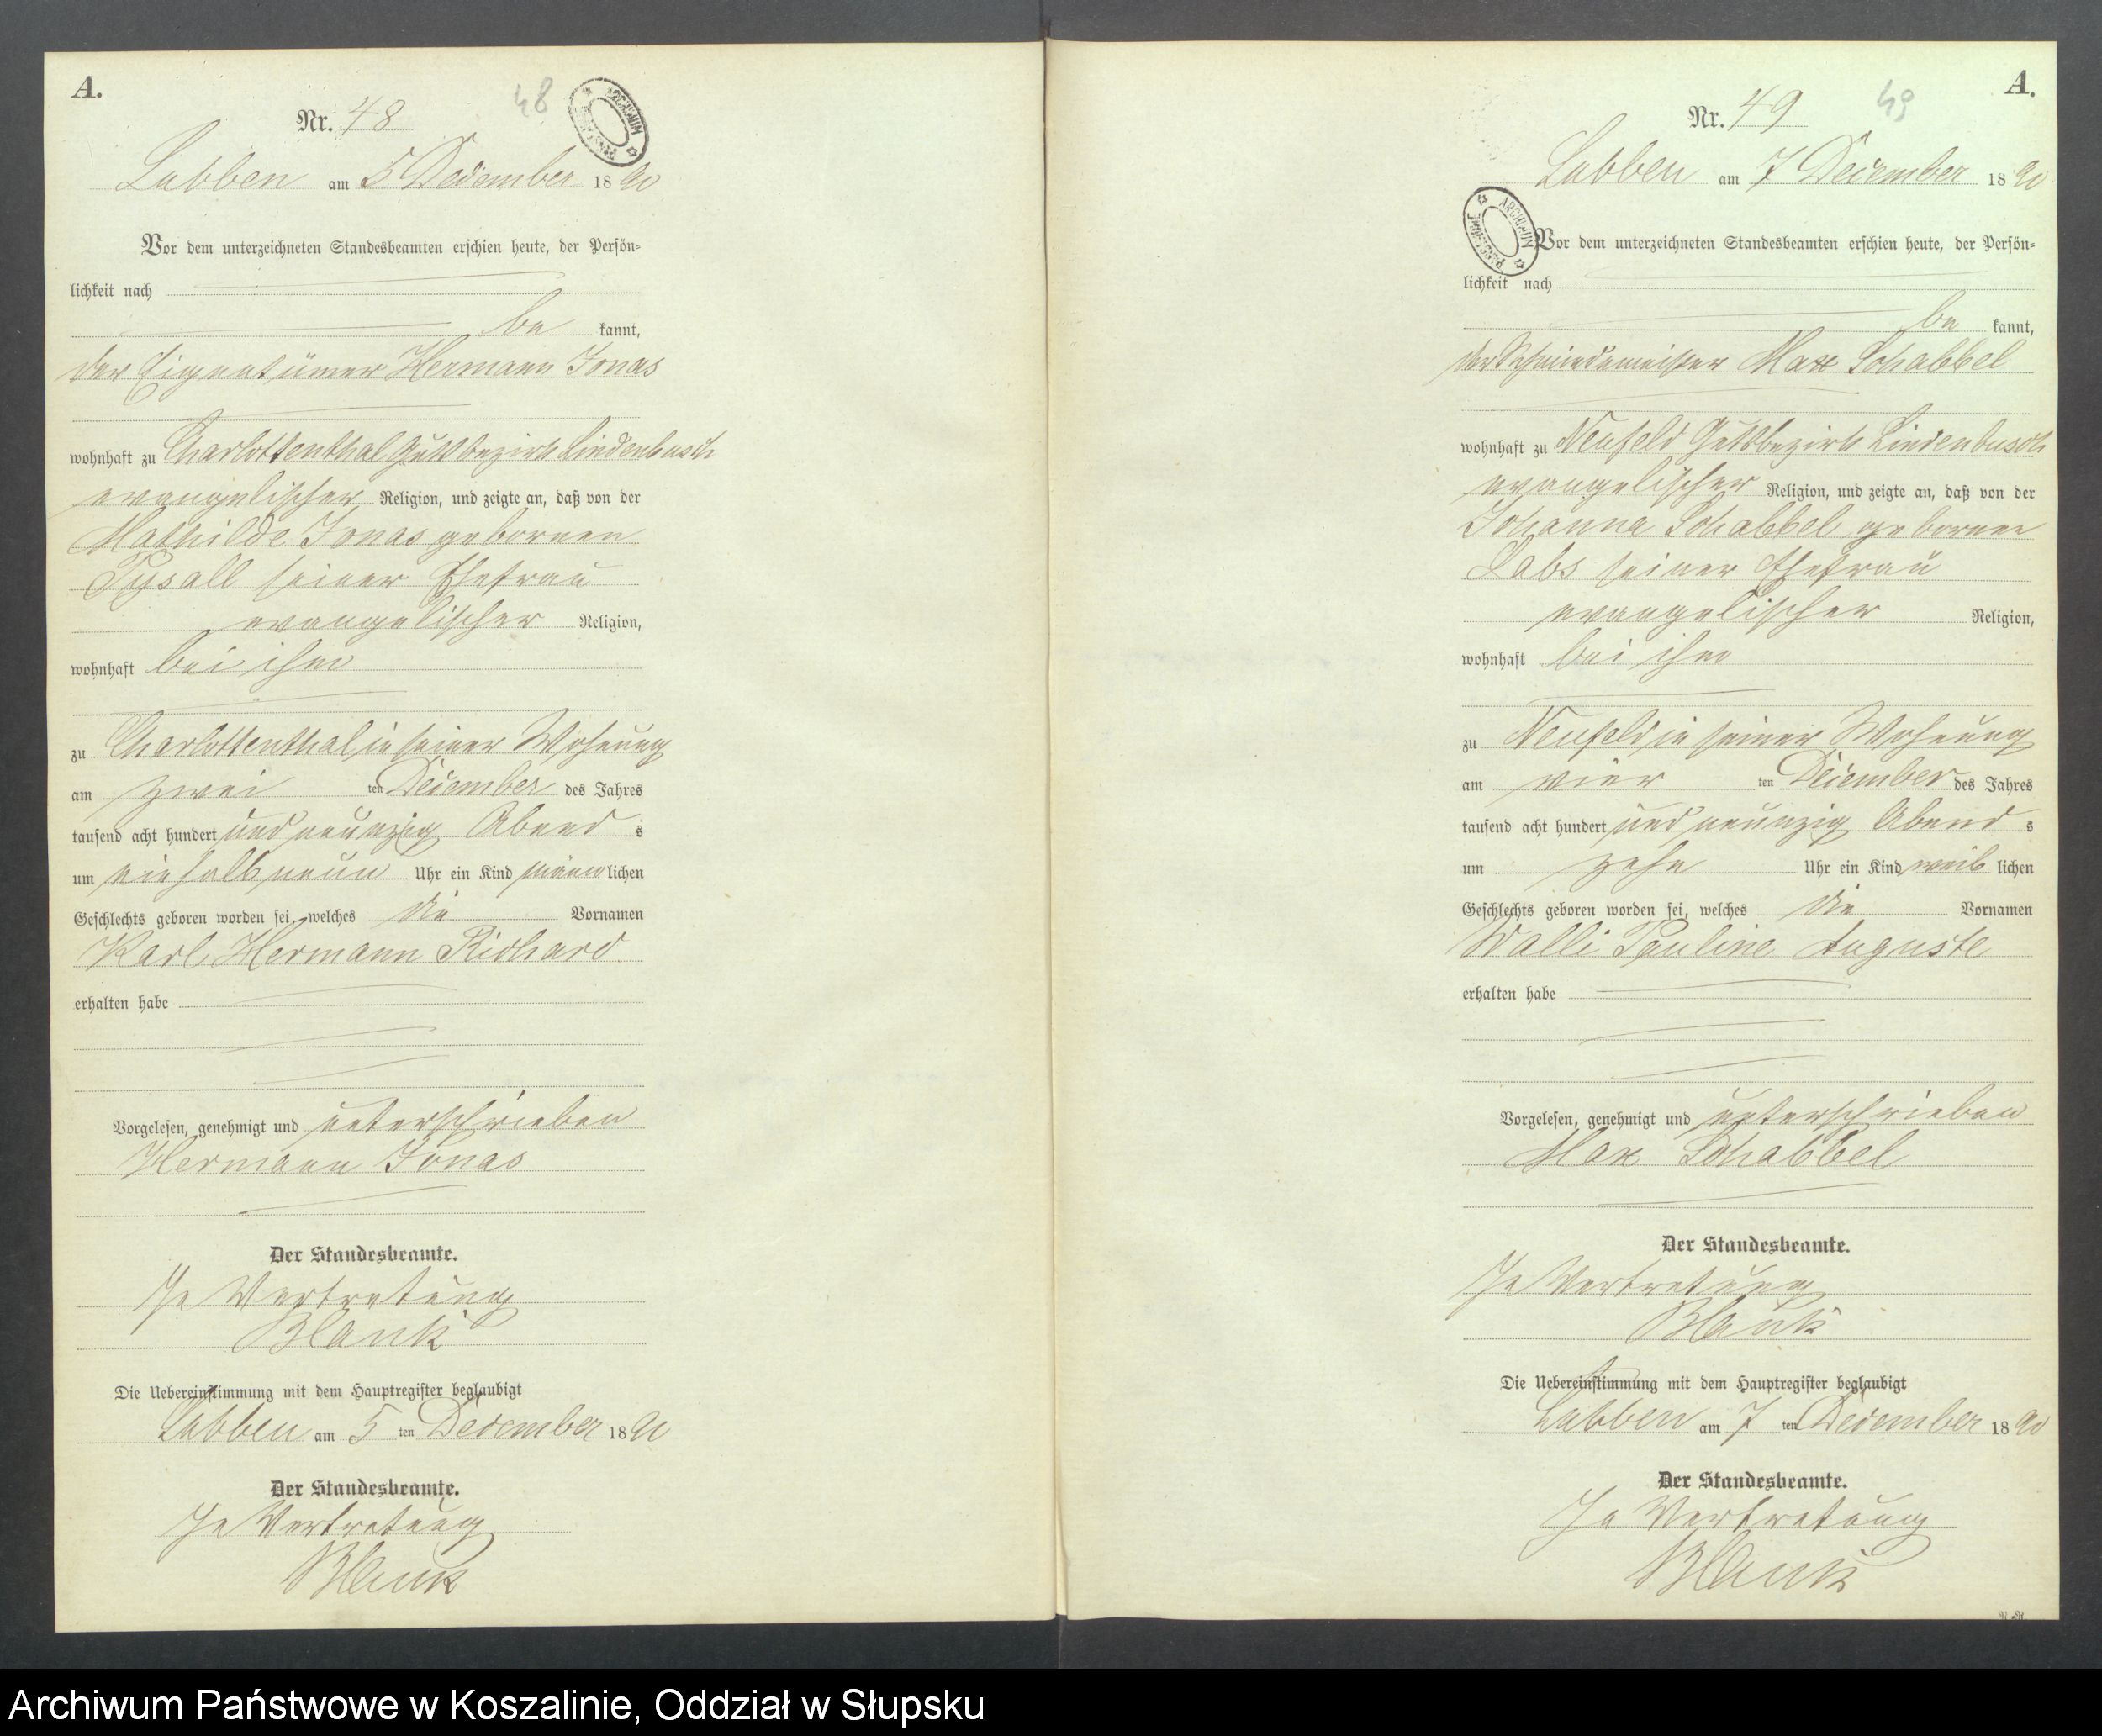 A.
48
Nr. 48
Labben am 5 December 1890
Vor dem unterzeichneten Standesbeamten erschien heute, der Persön-
lichkeit nach
be kannt,
der Eigentümer Hermann Jonas
wohnhaft zu Charlottenthal Gutsbezirk Lindenbusch
evangelischer Religion, und zeigte an, daß von der
Mathilde Jonas gebornen
Pysall seiner Ehefrau
evangelischer Religion,
wohnhaft bei ihm
zu Charlottenthal in seiner Wohnung
am zwei ten December des Jahres
tausend acht hundert und neunzig Abend s
um einhalb neun Uhr ein Kind männlichen
Geschlechts geboren worden sei, welches die Vornamen
Karl Hermann Richard
erhalten habe
Vorgelesen, genehmigt und unterschrieben
Hermann Jonas
Der Standesbeamte.
In Vertretung
Blank
Die Uebereinstimmung mit dem Hauptregister beglaubigt
Labben am 5 ten December 1890
Der Standesbeamte.
In Vertretung
Blank
A.
49
Nr. 49
Labben am 7 December 1890
ARCHIWUM
Vor dem unterzeichneten Standesbeamten erschien heute, der Persön-
lichkeit nach
be kannt,
der Schmiedemeister Max Schabbel
wohnhaft zu Neufeld Gutsbezirk Lindenbusch
evangelischer Religion, und zeigte an, daß von der
Johanna Schabbel geborner
Labs seiner Ehefrau
evangelischer Religion,
wohnhaft bei ihm
zu Neufeld in seiner Wohnung
am vier ten December des Jahres
tausend acht hundert und neunzig Abend s
um zehn Uhr ein Kind weib lichen
Geschlechts geboren worden sei, welches die Vornamen
Walli Pauline Auguste
erhalten habe
Vorgelesen, genehmigt und unterschrieben
Max Schabbel
Der Standesbeamte.
In Vertretung
Blank
Die Uebereinstimmung mit dem Hauptregister beglaubigt
Labben am 7 ten December 1890
Der Standesbeamte.
In Vertretung
Blank
Archiwum Państwowe w Koszalinie, Oddział w Słupsku